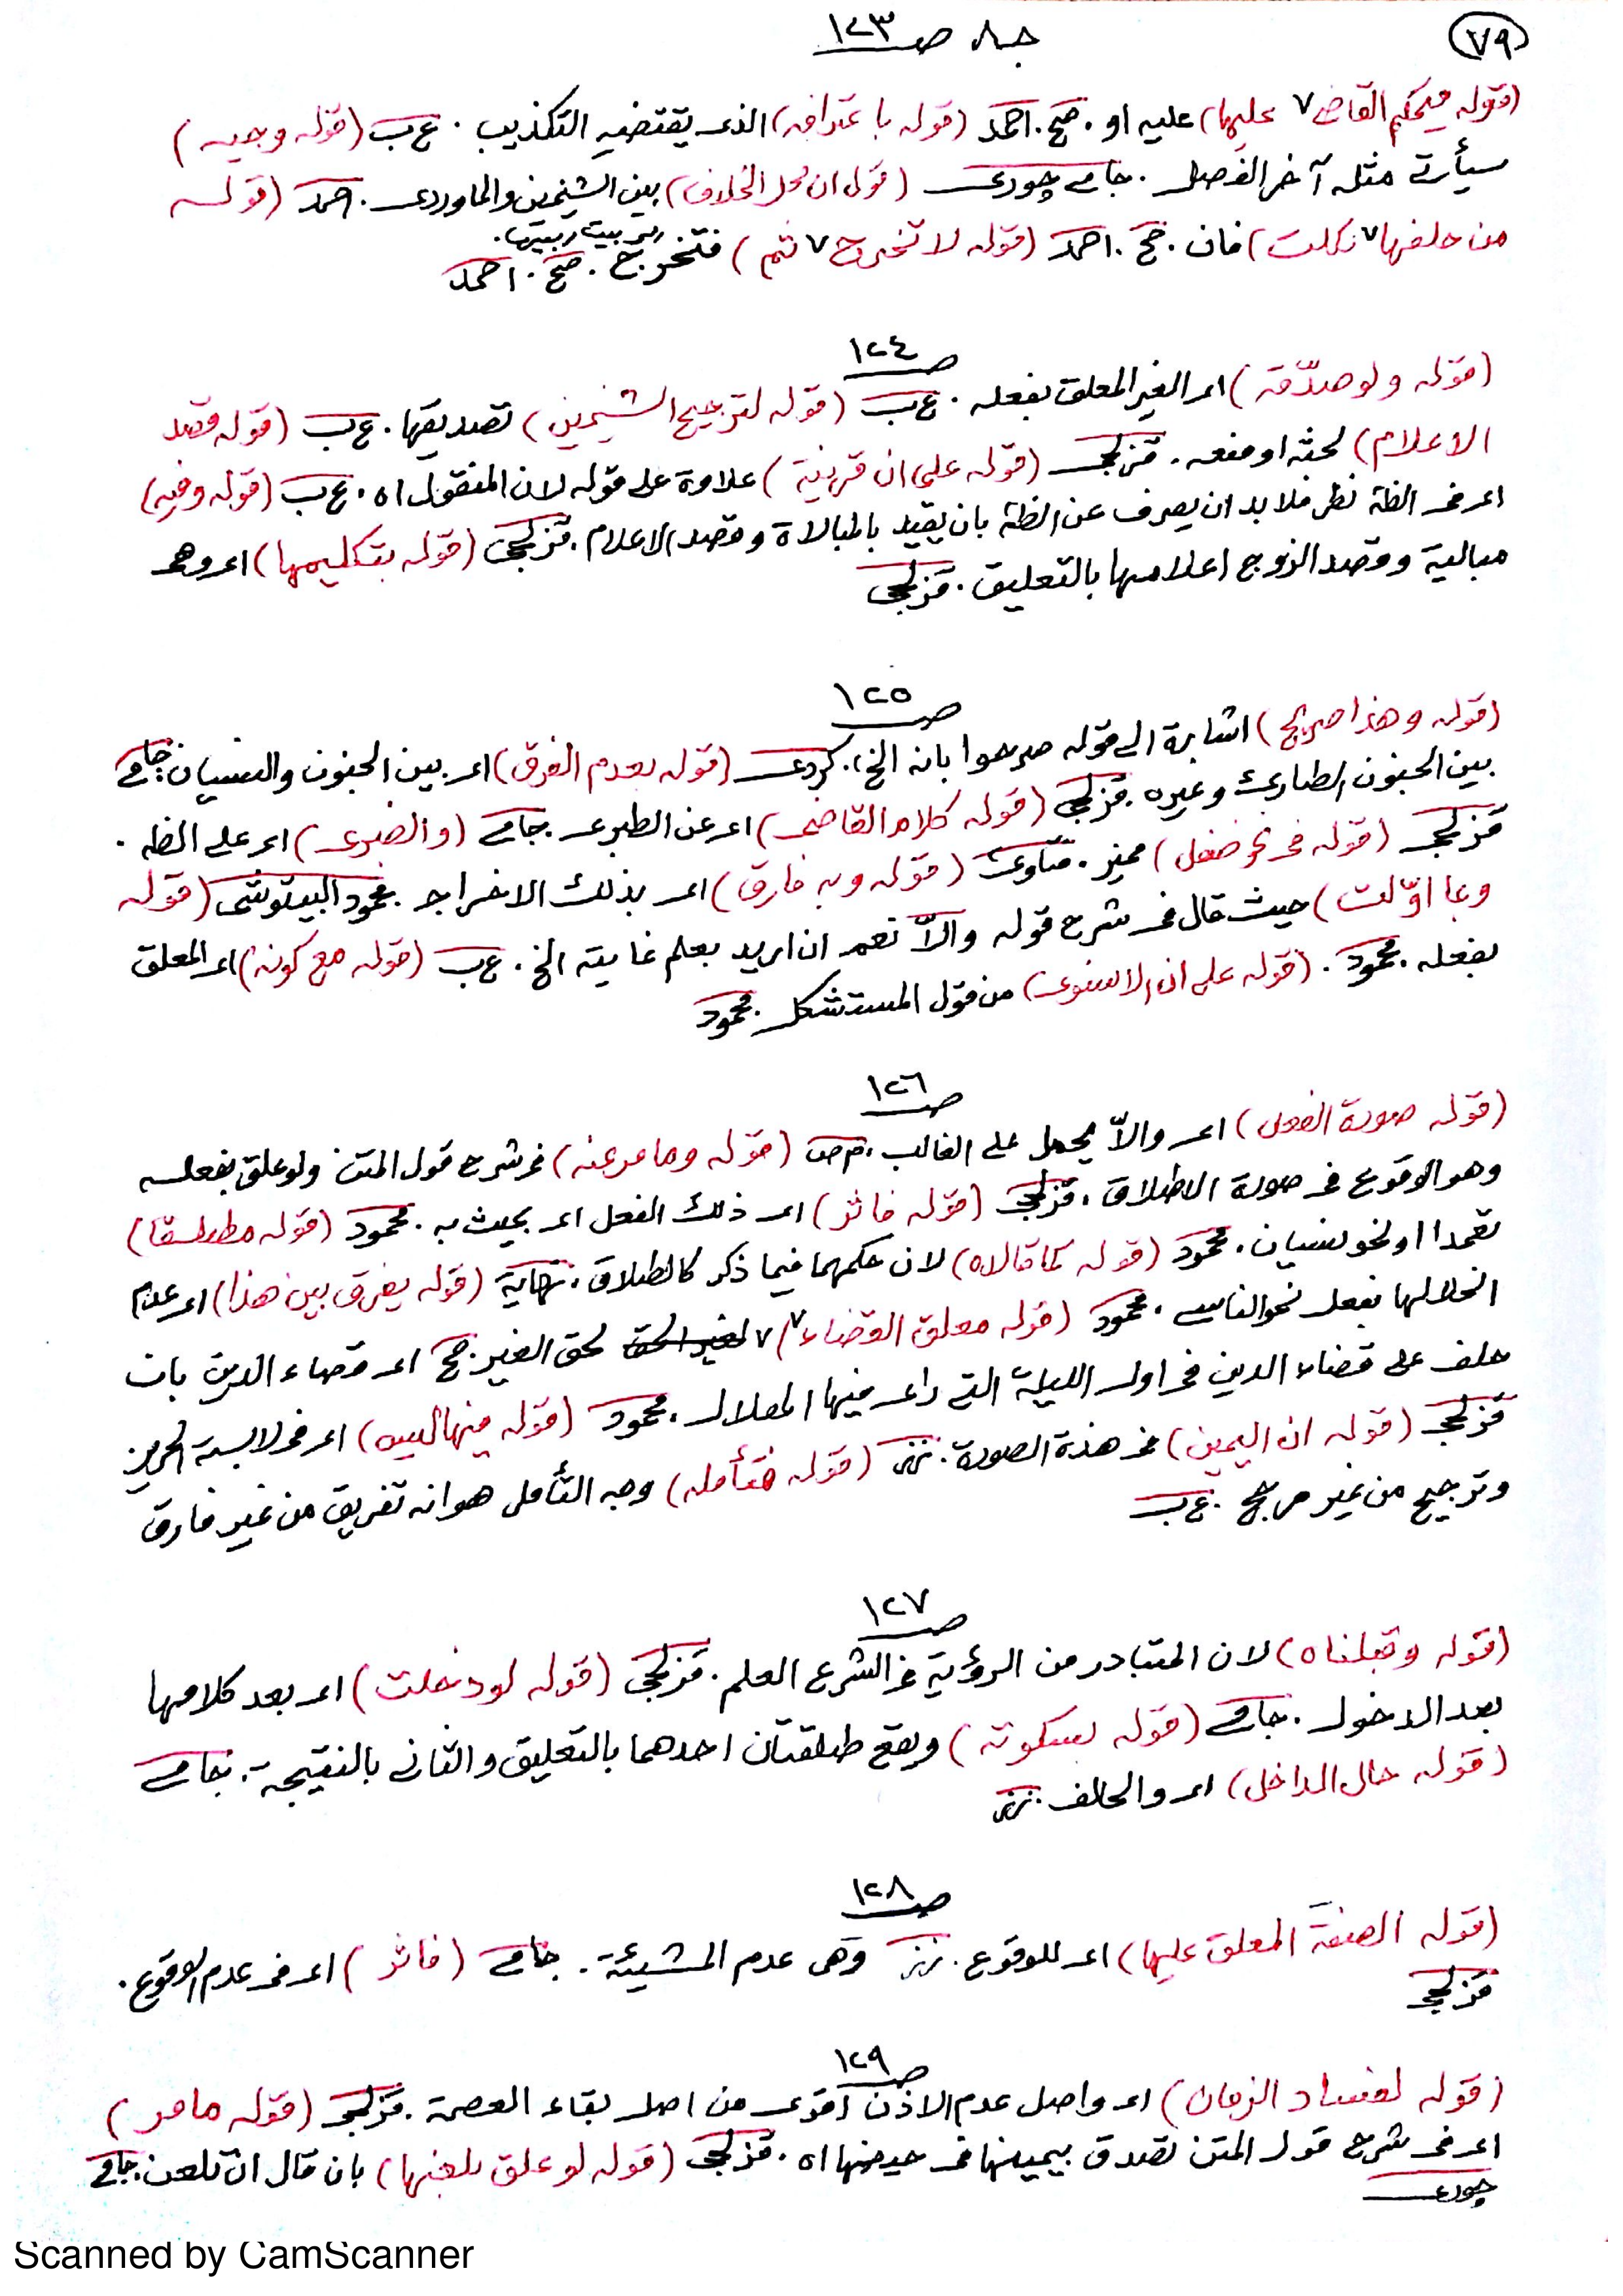 ٧٩
جـ٨ صـ ١٢٣
(قوله فيحكم القاضي٧ عليها) عليه او . صح . احمد (قوله باعترافه) الذي يقتضيه التكذيب . ع ب (قوله وجيه)
سيأتي مثله آخر الفصل . جامي چوري (قوله ان محل الخلاف) بين الشيخين والماوردي . احمد (قوله
من حلفها٧ نكلت) فان . صح . احمد (قوله لا تخرج٧ ثم) فتخرج . صح . احمد
صـ ١٢٤
(قوله ولو صدّقه) اي الغير المعلق بفعله . ع ب (قوله لترجيح الشيخين) تصديقها . ع ب (قوله قصد
الاعلام) لحثه او منعه . قزلجي (قوله على ان قرينة) علاوة على قوله لان المنقول اه . ع ب (قوله وفيه)
اي في الظة نظر فلا بد ان يصرف عن الظة بان يقيد بالمبالاة وقصد الاعلام . قزلجي (قوله بتكليمها) اي وهي
مبالية وقصد الزوج اعلامها بالتعليق . قزلجي
صـ ١٢٥
(قوله وهذا صريح) اشارة الى قوله صرحوا بانه الخ . كردي (قوله بعدم الفرق) اي بين الجنون والنسيان . جامي
بين الجنون الطارئ وغيره . قزلجي (قوله كلام القاضي) اي عن الطبري . جامي (والضرى) اي على الظة .
قزلجي (قوله في نحو ضفل) مميز . فتاوى (قوله وبه فارق) اي بذلك الاخراج . محمود البيتوشي (قوله
وبما اوّلت) حيث قال في شرح قوله والاّ نعم ان اريد بعلم غايته الخ . ع ب (قوله مع كونه) اي المعلق
بفعله . محمود . (قوله على ان الاسنوي) من قول المستشكل . محمود
صـ ١٢٦
(قوله صورة الفعل) اي والاّ يحمل على الغالب . م ص (قوله وما مر عنه) في شرح قول المتن ولو علق بفعله
وهو الوقوع في صورة الاطلاق . قزلجي (قوله فاثر) اي ذلك الفعل اي بحيث به . محمود (قوله مطلقا)
تعمدا او نحو نسيان . محمود (قوله كما قالاه) لان حكمهما فيما ذكر كالطلاق . نهاية (قوله يفرق بين هذا) اي عدم
انحلالها بفعل نحو الناسي . محمود (قوله معلق القضاء٧) ٧ لحق الغير . صح اي قضاء الدين بان
حلف على قضاء الدين في اول الليلة التي راى فيها الهلال . محمود (قوله فيها لبسه) اي في لابسة الحرير
قزلجي (قوله ان اليمين) في هذة الصورة . نز (قوله فتأمله) وجه التأمل هو انه تفريق من غير فارق
وترجيح من غير مرجح . ع ب
صـ ١٢٧
(قوله وقبلناه) لان المتبادر من الرؤية في الشرع العلم . قزلجي (قوله لو دخلت) اي بعد كلامها
بعد الدخول . جامي (قوله بسكوته) ويقع طلقتان احدهما بالتعليق والثاني بالنتيجة . جامي
(قوله حال الداخل) اي والحالف . نز
صـ ١٢٨
(قوله الصفة المعلق عليها) اي للوقوع . نز وهي عدم المشيئة . جامي (فاثر) اي في عدم الوقوع .
قزلجي
صـ ١٢٩
(قوله لفساد الزمان) اي واصل عدم الاذن اقوى من اصل بقاء العصمة . قزلجي (قوله ما مر)
اي في شرح قول المتن تصدق بيمينها في حيضها اه . قزلجي (قوله لو علق بلعنها) بان قال ان تلعن . جامي
چوري
Scanned by CamScanner